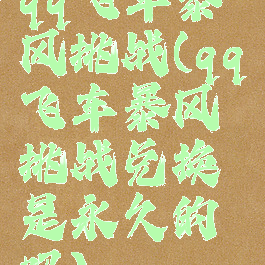 qq飞车暴
风挑战(qq
飞车暴风
挑战兑换
是永久的
吗)